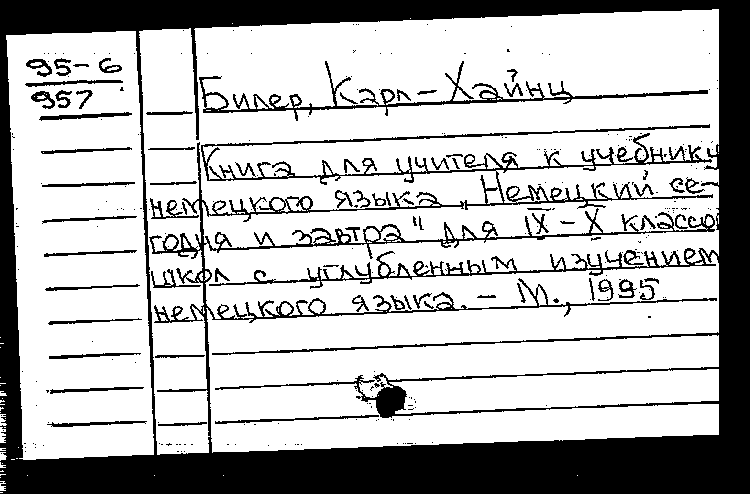 95-6
957
Билер, Карл-Хайнц
Книга для учителя к учебнику
немецкого языка „Немецкий се-
годня и завтра" для IX-X классо
школ с углубленным изучением
немецкого языка. - М., 1995